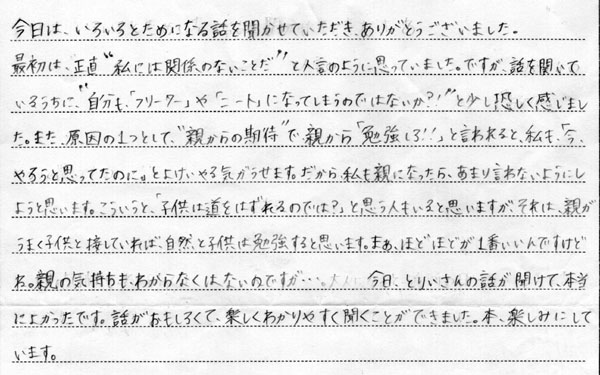 今日は、いろいろとためになる話を聞かせていただき、ありがとうございました。
最初は、正直“私には関係のないことだ”と人言のように思っていました。ですが、話を聞いて
いるうちに、“自分も、「フリーター」や「ニート」になってしまうのではないか?!”と少し恐しく感じまし
た。また、原因の1つとして、“親からの期待”で、親から「勉強しろ!!」と言われると、私も、「今、
やろうと思ってたのに。」とよけいやる気がうせます。だから、私も親になったら、あまり言わないようにし
ようと思います。こういうと、「子供は道をはずれるのでは?」と思う人もいると思いますが、それは、親が
うまく子供と接していれば、自然と子供は勉強すると思います。まぁ、ほどほどが1番いいんですけど
ね。親の気持ちも、わからなくはないのですが…。 今日、とりいさんの話が聞けて、本当
によかったです。話がおもしろくて、楽しくわかりやすく聞くことができました。本、楽しみにして
います。